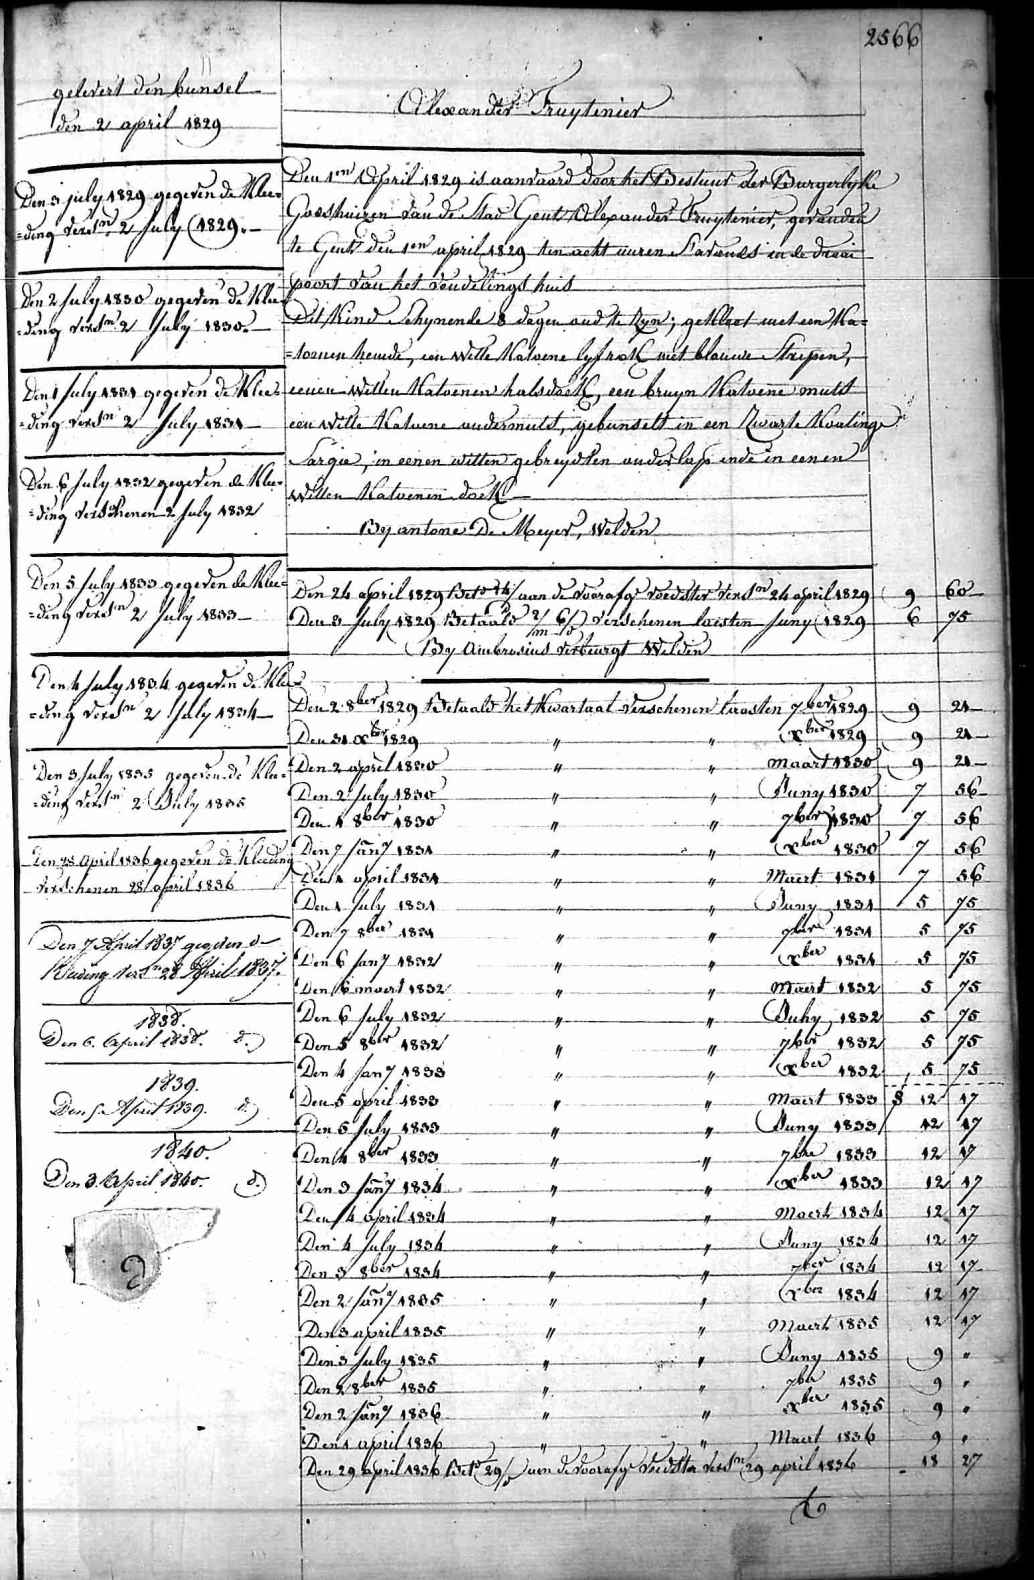 2566
gelevert den bunsel
den 2 april 1829
Den 3 july 1829 gegeven de Klee=
=ding versn 2 July 1829.
Den 2 July 1830 gegeven de Klee=
=ding versn 2 July 1830.
Den 1 July 1831 gegeven de Klee=
=ding versn 2 July 1831
Den 6 July 1832 gegeven de Klee=
=ding verschenen 2 July 1832
Den 5 July 1833 gegeven de Klee=
=ding versn 2 July 1833
Den 4 July 1834 gegeven de Klee=
=ding versn 2 July 1834
Den 3 July 1835 gegeven de Klee=
=ding versn 2 July 1835
Den 28 April 1836 gegeven de Kleeding
verschenen 28 april 1836
Den 7 April 1837 gegeven de
Kleeding versn 28 April 1837.
1838.
Den 6. April 1838. d.
1839.
Den 5 April 1839. d.
1840.
Den 3 April 1840. d.
Alexander Fruytenier
Den 1en April 1829 is aanvaard door het Bestuur der Burgerlyke
Godshuizen van de Stad Gent, Alexander Fruytenier, gevonden
te Gent den 1en april 1829 ten acht uuren s'avonds in de draai
poort van het vondelings huis
Dit Kind schynende 8 dagen oud te zyn; gekleet met een Ka=
=toenen hemde, een witte Katoene lyfrok met blauwe Strepen,
eenen witten Katoenen halsdoek, een bruyn Katoene muts
een witte Katoene ondermuts, gebunselt in een zwarte
Sargie, in eenen witten gebreydten onderlap ende in eenen
witten Katoenen doek
By antone De Meyer, Welden
Den 24 april 1829 Bet. aan de voorafge voedster versn 24 april 1829 9 60
Den 3 July 1829 Betaald 2/m 6/d verschenen laesten Juny 1829 6 75
By Ambrosius Verburgt Welden
Den 2 8ber 1829 Betaald het Kwartaal verschenen laasten 7ber 1829 9 21
Den 31 Xber 1829 " " Xber 1829 9 21
Den 2 april 1830 " " maart 1830 9 21
Den 2 July 1830 " " Juny 1830 7 56
Den 1 8ber 1830 " " 7ber 1830 7 56
Den 7 Jany 1831 " " Xber 1830 7 56
Den 1 april 1831 " " Maert 1831 7 56
Den 1 July 1831 " " Juny 1831 5 75
Den 7 8ber 1831 " " 7ber 1831 5 75
Den 6 Jany 1832 " " Xber 1831 5 75
Den 6 maert 1832 " " Maert 1832 5 75
Den 6 July 1832 " " Juny 1832 5 75
Den 5 8ber 1832 " " 7ber 1832 5 75
Den 4 Jany 1833 " " Xber 1832 5 75
Den 5 april 1833 " " Maert 1833 12 17
Den 5 July 1833 " " Juny 1833 12 17
Den 4 8ber 1833 " " 7bre 1833 12 17
Den 3 Jany 1834 " " Xber 1833 12 17
Den 4 april 1834 " " Maert 1834 12 17
Den 4 July 1834 " " Juny 1834 12 17
Den 3 8ber 1834 " " 7ber 1834 12 17
Den 2 Jany 1835 " " Xber 1834 12 17
Den 3 april 1835 " " Maert 1835 12 17
Den 3 July 1835 " " Juny 1835 9 "
Den 2 8ber 1835 " " 7ber 1835 9 "
Den 2 Jany 1836 " " Xber 1835 9 "
Den 1 april 1836 " " Maert 1836 9 "
Den 29 april 1836 Bet. 29/d aen de voorafge voedster versn 29 april 1836 18 27